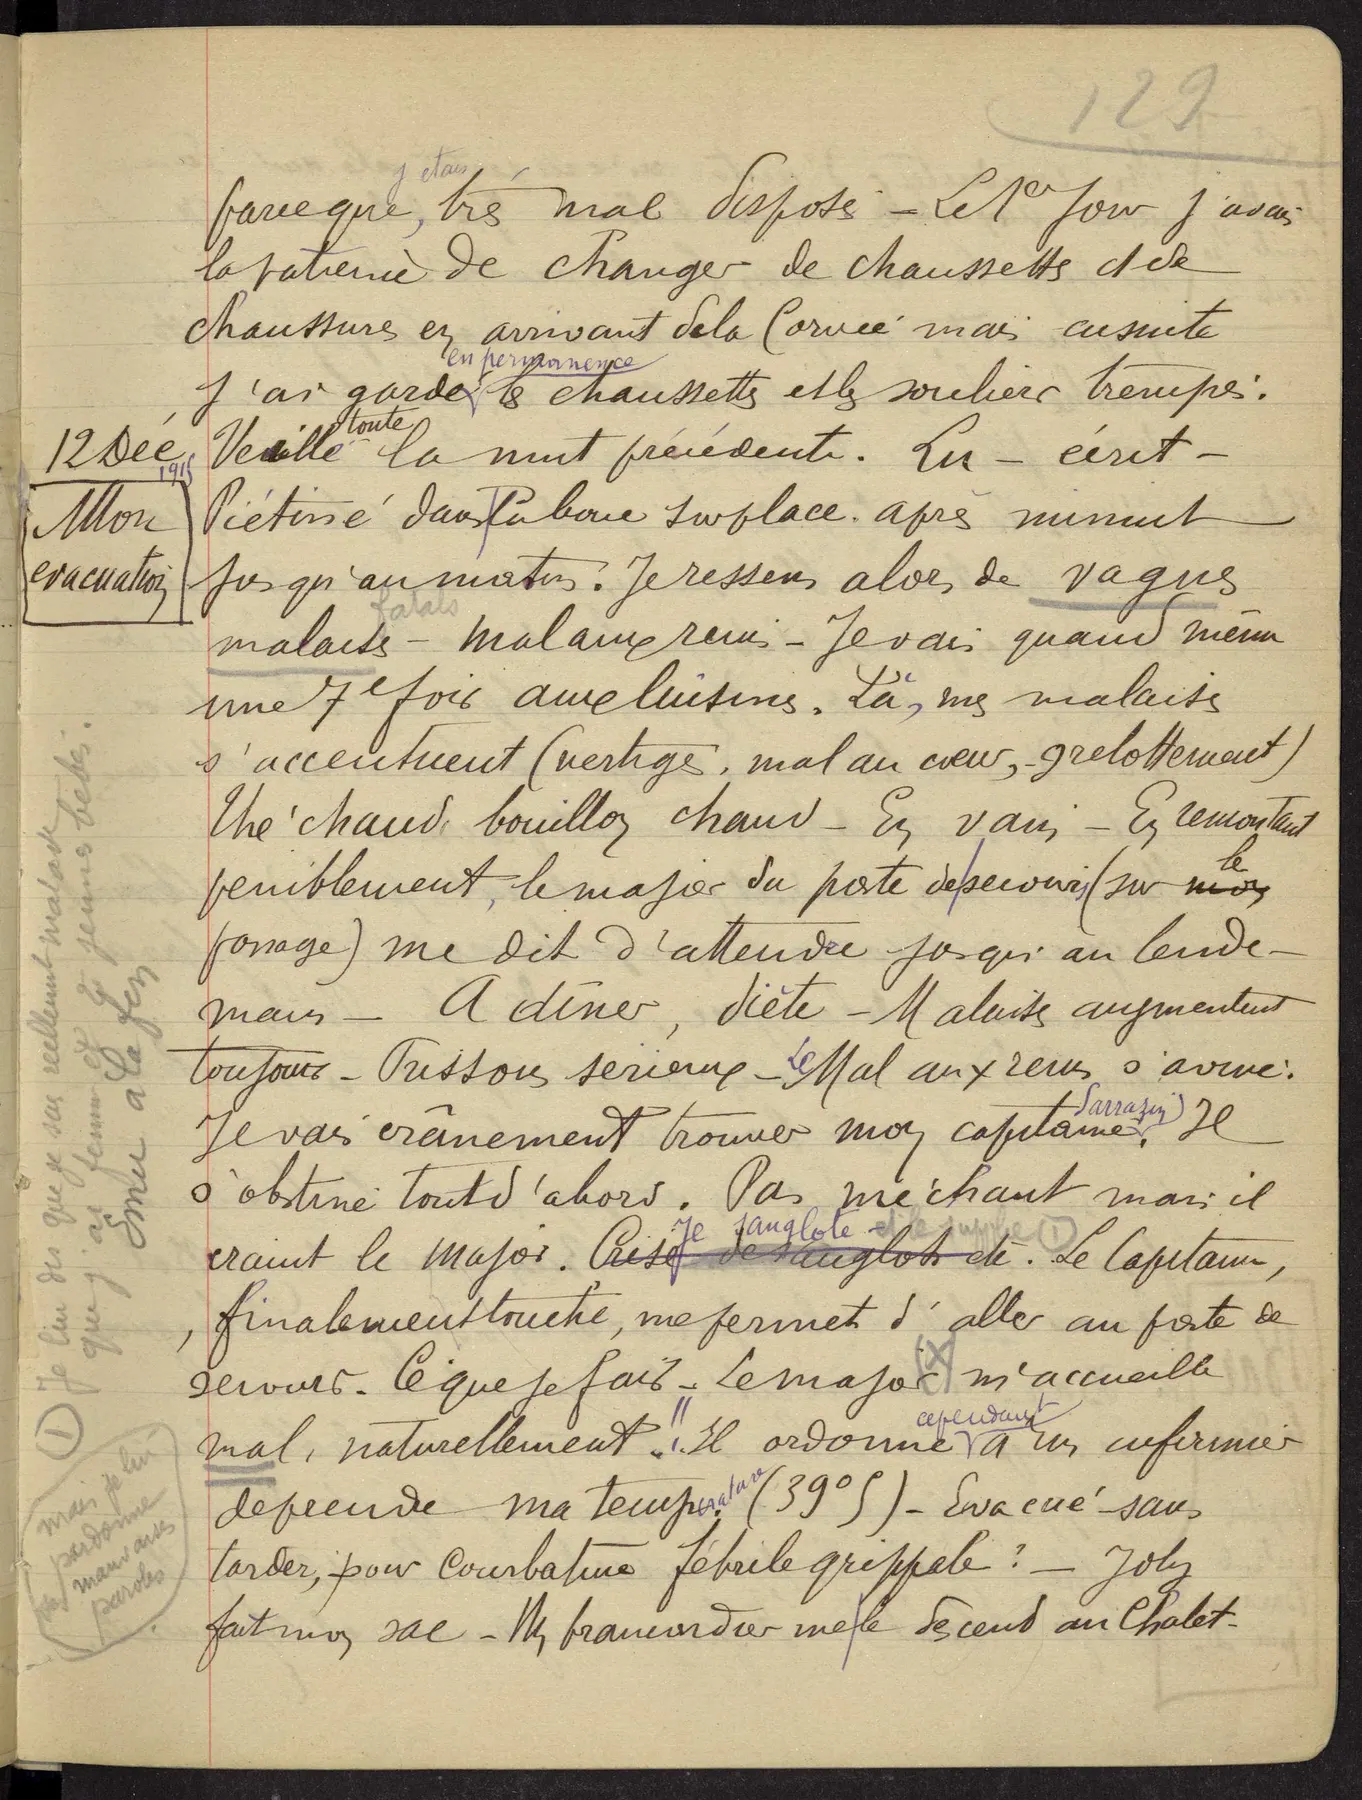 129
parceque j'etais, très mal disposé – Le 1er jour j'avais
la patience de changer de chaussettes et de
chaussures en arrivant de la Corvée mais ensuite
j'ai gardé en permanence les chaussettes et les souliers trempés.
12 Déc 1915
Mon
evacuation
Veillé toute la nuit précédente. Lu – écrit –
Piétiné dans la boue sur place. après minuit
jusqu'au matin. Je ressens alors de vagues
malaises – mal aux reins – Je vais quand même
une 7e fois aux cuisines. Là, mes malaises
s'accentuent (vertiges, mal au cœur, grelottement)
Thé chaud, bouillon chaud – En vain – En remontant
peniblement, le major du poste de secours (sur mon le
passage) me dit d'attendre jusqu'au lende-
main – A dîner, diète – Malaises augmentent
toujours – Frissons serieux – Le Mal aux reins s'avive.
Je vais crânement trouver mon capitaine Sarrazin). Il
s'obstine tout d'abord. Pas méchant mais il
Je sanglote – et le supplie (1)
craint le major. Crise de sanglots etc. Le Capitaine,
finalement touché, me permet d'aller au poste de
secours. Ce que je fais – Le major (X) m'accueille
mal, naturellement !! Il ordonne cependant à un infirmier
de prendre ma température (39°5) – Evacué sans
tarder, pour Courbature fébrile grippale ? – Joly
fait mon sac – Un brancardier me le descend au Chalet.
(1) Je lui dis que je suis reellement malade
que j'ai femme et 2 jeunes bébés.
Emu à la fin
mais je lui
pardonne
ses mauvaises
paroles.